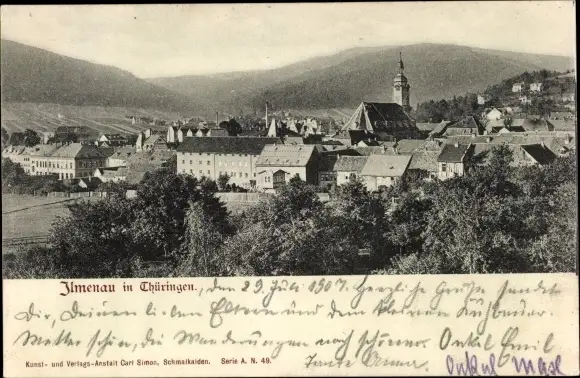 Ilmenau in Thüringen. , den 29. Juli 1907. Herzliche Grüße sendet
Dir, Deinen lieben Eltern und dem kleinen
Wetter schön, die Wanderungen noch schöner. Onkel Emil
Kunst- und Verlags-Anstalt Carl Simon, Schmalkalden. Serie A. N. 49. Tante Anna. Onkel